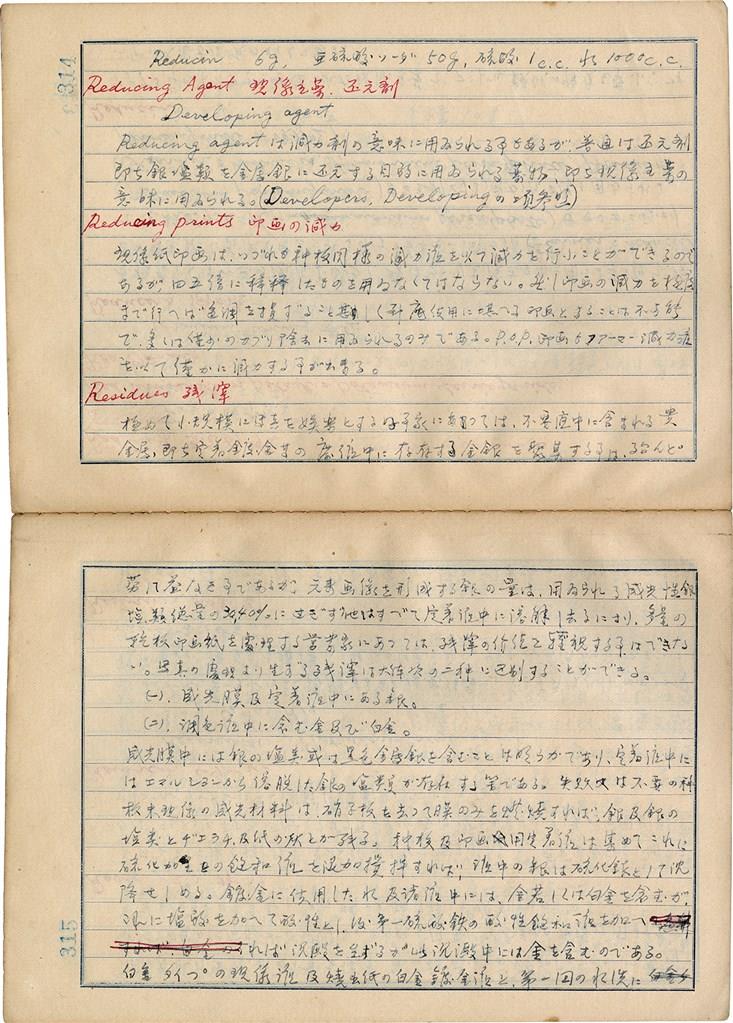 314
Reducin 6g, 亜硫酸ソーダ 50g, 硫酸 1c.c. 水 1000c.c.
Reducing Agent 現像主薬、还元剤
Developing agent
Reducing agent は減力剤の意味に用ゐられる事もあるが、普通は还元剤
即ち銀塩類を金属銀に还元する目的に用ゐられる薬物、即ち現像主薬の
意味に用ゐられる。(Developers, Developing の項参照)
Reducing prints 印画の減力
現像紙印画は、いづれも種板同様の減力液を以て減力を行ふことができるので
あるが四五倍に稀釋したものを用ゐなくてはならない。然し印画の減力を極度
まで行へば色調を損ずること甚しく到底使用に堪へる印画とすることは不可能
で、多くは僅かのカブリ除去に用ゐられるのみである。P.O.P. 印画もファーマー減力液
を以て僅かに減力する事が出来る。
Residues 残滓
極めて小規模に写真を娯楽とする にあつては、不用液中に含まれる貴
金属、即ち定着鍍金等の廃液中に存存する金銀を 集する事は、殆んど
益なき事であるが、元来画像を形成する銀の量は、用ゐられる感光性銀
塩類総量の 40%にすぎず他はすべて定着液中に溶解し去るにより、多量の
乾板印画紙を處理する営業家にあつては、残滓の價値を軽視する事はできな
い。写真の處理より生ずる残滓は大体次の二種に区別することができる。
(一). 感光膜及定着液中にある銀。
(二). 調色液中に含む金及び白金。
感光膜中には銀の塩類或は黒色金属銀を含むことは明らかであり、定着液中に
はエマルションから溶脱した銀の塩類が存在する筈である。失敗又は不要の種
板未現像の感光材料は、硝子板を去つて膜のみを燃焼すれば、銀及銀の
塩类とゼエラチン及紙の灰とが残る。種板及印画用定着液は集めてこれに
硫化加里の飽和液を混加攪拌すれば、液中の銀は硫化銀として沈
降せしめる。鍍金に使用した水及諸液中には、金若しくは白金を含むが、
これに塩酸を加へて酸性とし、後第一硫酸鉄の酸性飽和液を加へ
れば沈殿を生ずるが此沈澱中には金を含むのである。
白金タイプの現像液及焼出紙の白金鍍金液と、第一回の水洗に
315